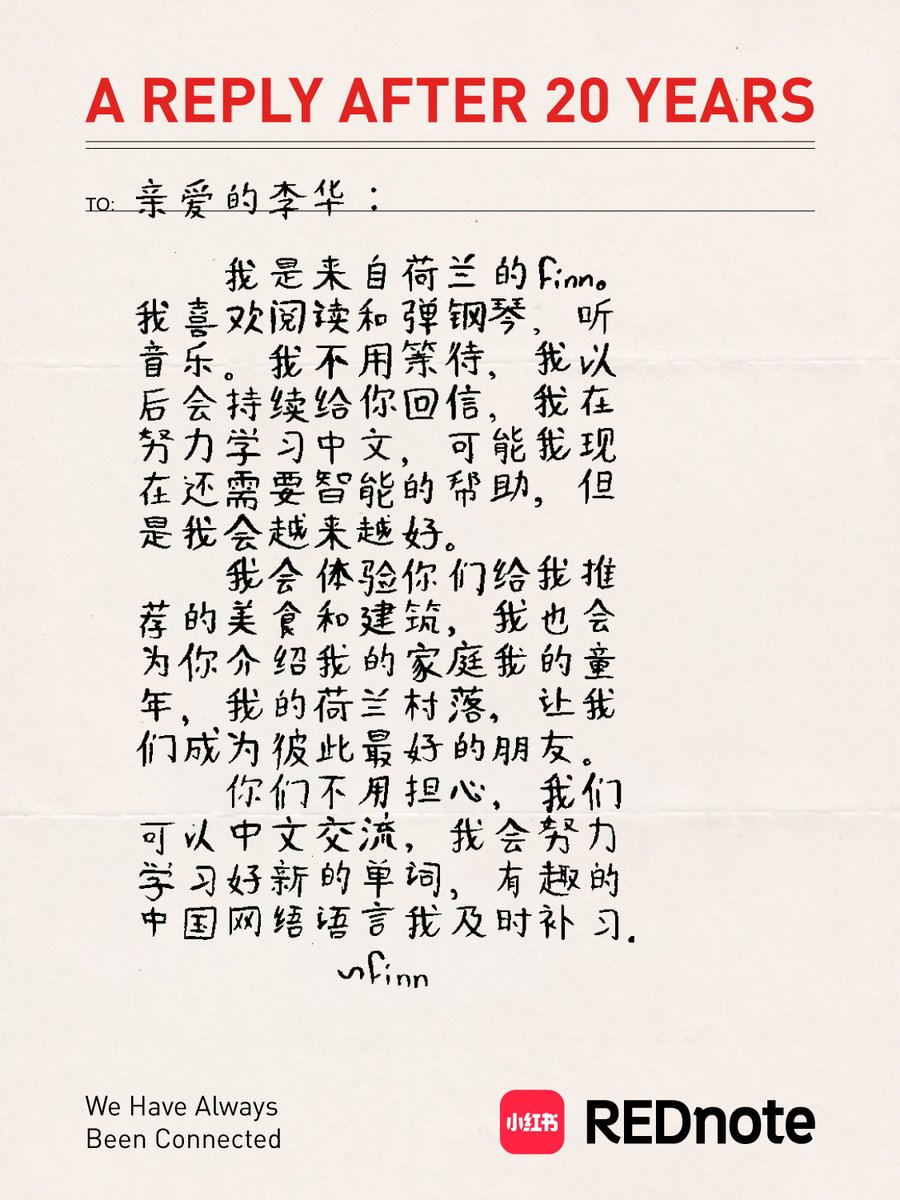 A REPLY AFTER 20 YEARS
TO: 亲爱的李华：
我是来自荷兰的finn。
我喜欢阅读和弹钢琴，听
音乐。我不用等待，我以
后会持续给你回信，我在
努力学习中文，可能我现
在还需要智能的帮助，但
是我会越来越好。
我会体验你们给我推
荐的美食和建筑，我也会
为你介绍我的家庭我的童
年，我的荷兰村落，让我
们成为彼此最好的朋友。
你们不用担心，我们
可以中文交流，我会努力
学习好新的单词，有趣的
中国网络语言我及时补习.
~finn
We Have Always
Been Connected
小红书 REDnote